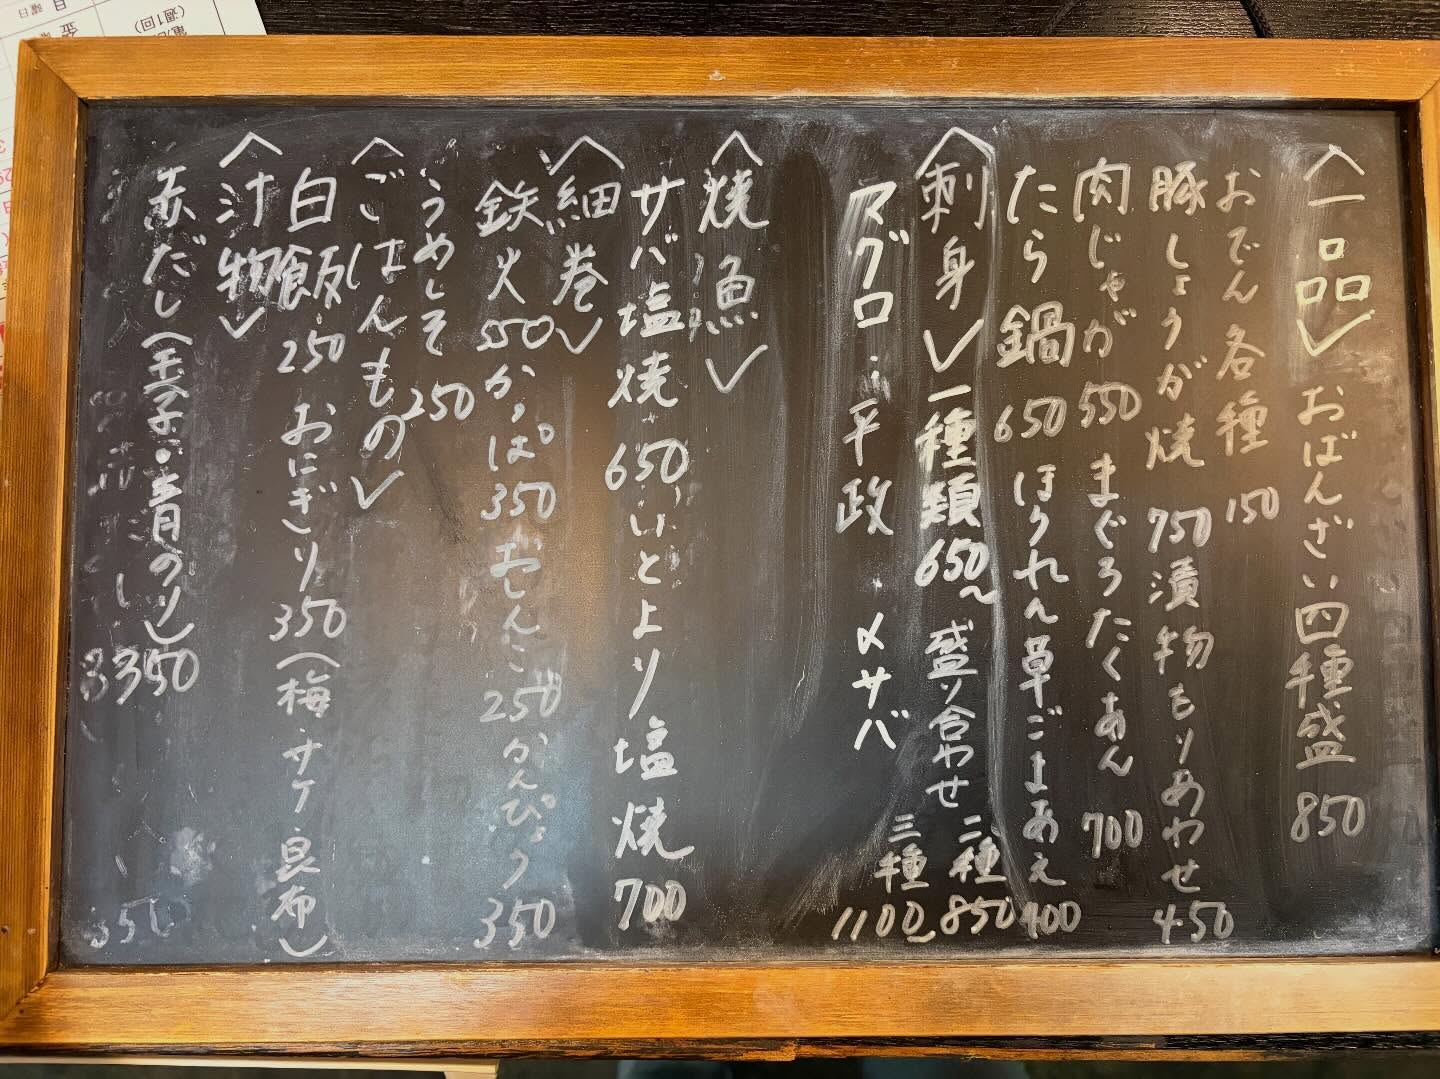 〈一品〉 おばんざい四種盛 850
おでん各種 150
豚しょうが焼 750 漬物もりあわせ 450
肉じゃが 550 まぐろたくあん 700
たら鍋 650 ほうれん草ごまあえ 400
〈刺身〉 一種類 650〜 盛り合わせ 二種 850 三種 1100
マグロ・平政・〆サバ
〈焼魚〉
サバ塩焼 650 いとより塩焼 700
〈細巻〉
鉄火 550 かっぱ 350 おしんこ 250 かんぴょう 350
うめしそ 250
〈ごはんもの〉
白飯 250 おにぎり 350 (梅・サケ・昆布)
〈汁物〉
赤だし(玉子・青のり) 350
350